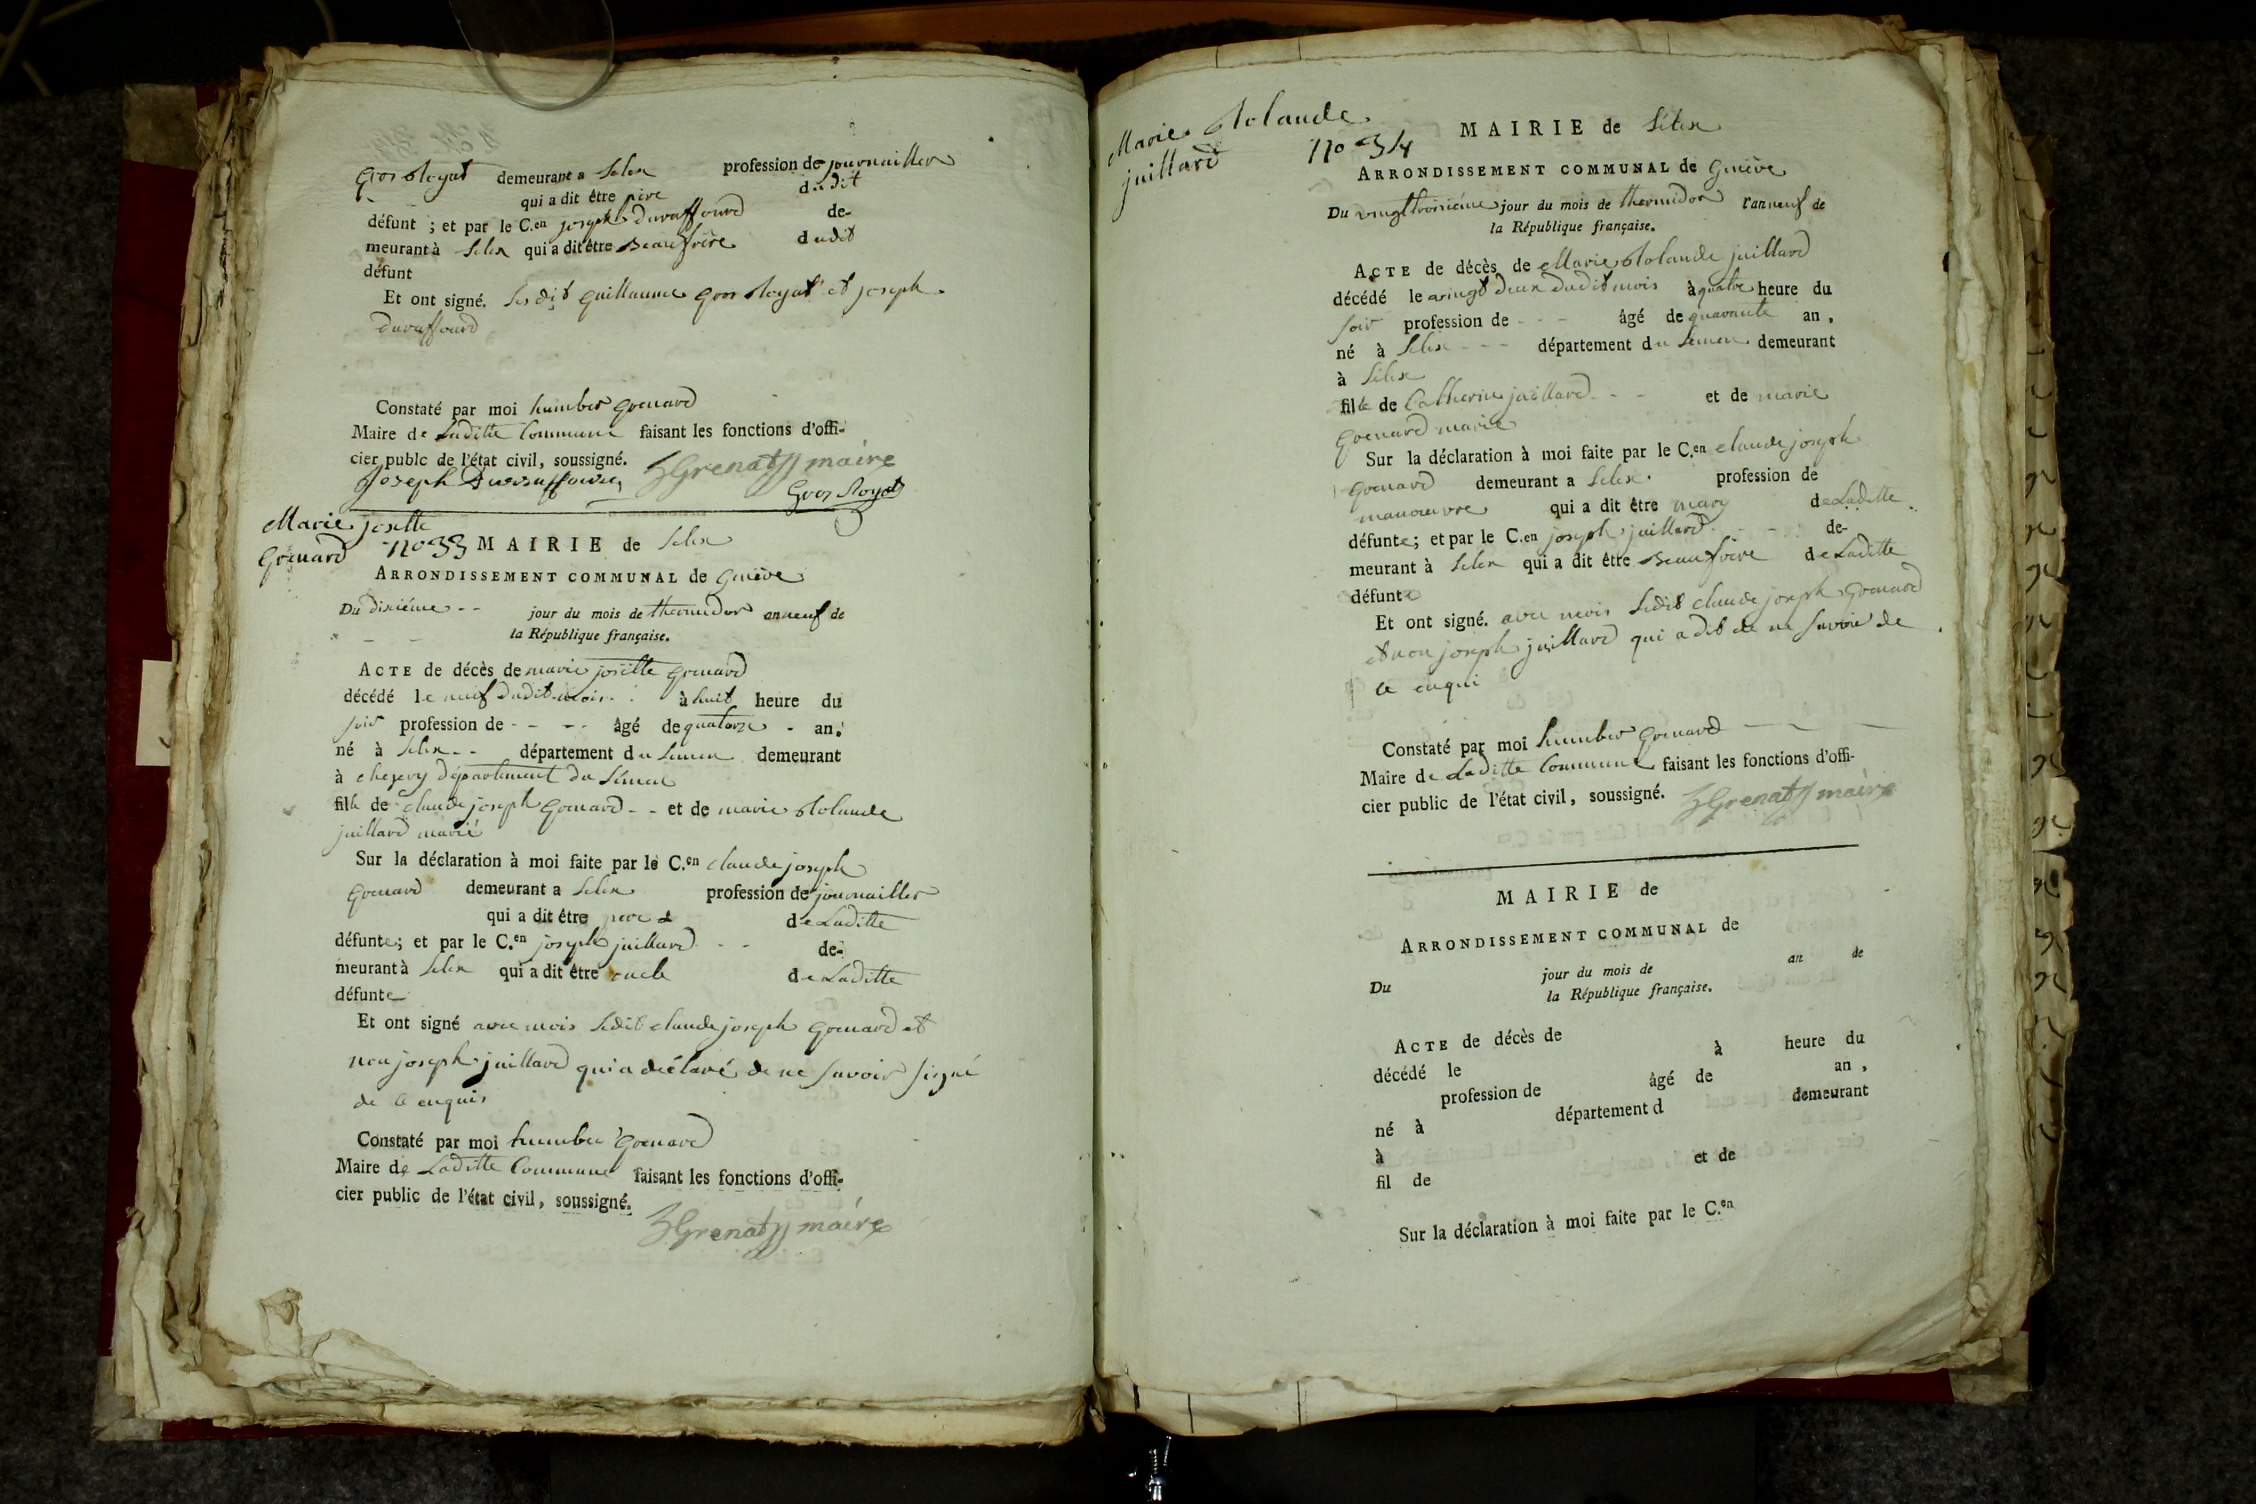 gros Royat demeurant a Lelex profession de journaillier
qui a dit être père dudit
défunt ; et par le C.en joseph duraffourd de-
meurant à Lelex qui a dit être Beaufrère dudit
défunt
Et ont signé. Lesdit guillaume gros Royat et joseph
duraffourd
Constaté par moi humber grenard
Maire de Laditte Commune faisant les fonctions d'offi-
cier publc de l'état civil, soussigné. hGrenard maire
Joseph Gros Royat
Marie josette
Grenard
no 33 MAIRIE de Lelex
ARRONDISSEMENT COMMUNAL de Genève
Du dixiéme jour du mois de thermidor an neuf de
la République française.
ACTE de décès de marie josette grenard
décédé le neuf dudit mois à huit heure du
soir profession de - - - âgé de quatorze - an.
né à Lelex - - département du Léman demeurant
à chezery département du Léman
fille de claude joseph grenard - - et de marie Rolande
juillard marié
Sur la déclaration à moi faite par le C.en claude joseph
grenard demeurant a Lelex profession de journaillier
qui a dit être pere de Laditte
défunte; et par le C.en joseph juillard - - de-
meurant à Lelex qui a dit être oncle de Laditte
défunte
Et ont signé avec mois Ledit claude joseph grenard et
non joseph juillard qui a déclaré de ne savoir signé
de ce enquis
Constaté par moi humber grenard
Maire de Laditte Commune faisant les fonctions d'offi-
cier public de l'état civil, soussigné.
hGrenard maire
Marie Rolande
juillard
no 34 MAIRIE de Lélex
ARRONDISSEMENT COMMUNAL de Genève
Du vingttroisiéme jour du mois de thermidor l'an neuf de
la République française.
ACTE de décès de Marie Rolande juillard
décédé le vingt deux dudit mois à quatre heure du
soir profession de - - - âgé de quarante an,
né à Lelex - - - département du Léman demeurant
à Lélex
fille de Catherin juillard - - - et de marie
grenard marié
Sur la déclaration à moi faite par le C.en claude joseph
grenard demeurant a Lelex. profession de
manoeuvre qui a dit être mary de Laditte
défunte; et par le C.en joseph juillard - - de-
meurant à Lelex qui a dit être Beaufrère de Laditte
défunte
Et ont signé. avec mois Ledit claude joseph grenard
et non joseph juillard qui a dit de ne savoir de
ce enqui
Constaté par moi humber grenard
Maire de Laditte Commune faisant les fonctions d'offi-
cier public de l'état civil, soussigné. hGrenard maire
MAIRIE de
ARRONDISSEMENT COMMUNAL de
Du jour du mois de an de
la République française.
ACTE de décès de
décédé le à heure du
profession de âgé de an,
né à département d demeurant
à
fil de et de
Sur la déclaration à moi faite par le C.en